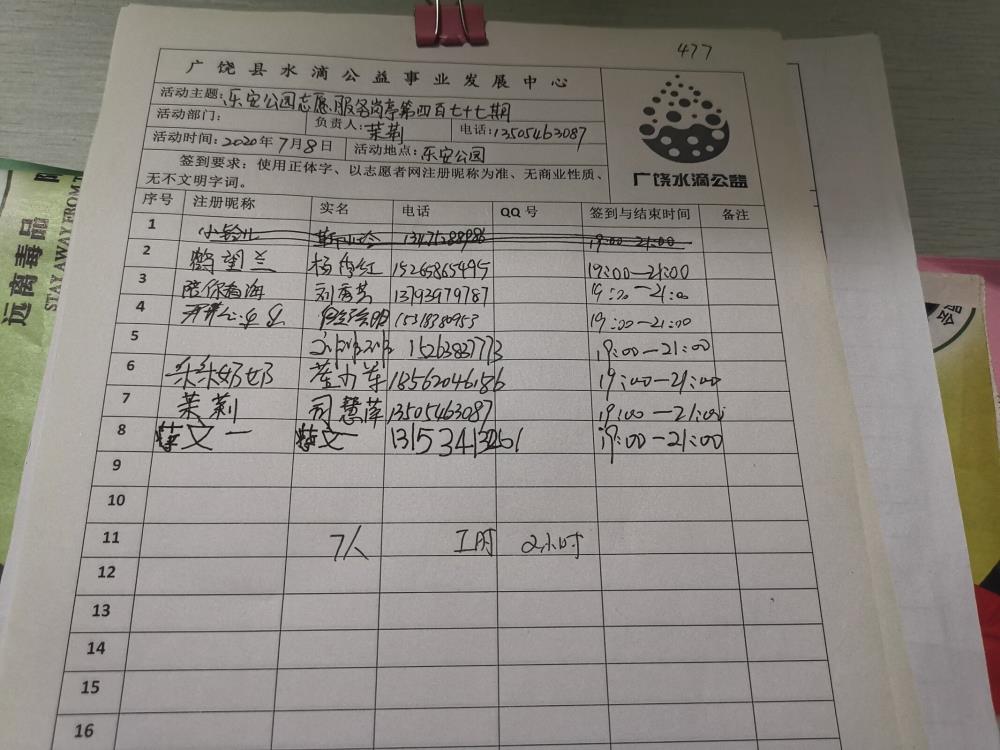 477
广饶县水滴公益事业发展中心
活动主题：乐安公园志愿服务岗亭第四百七十七期
活动部门： 负责人：茉莉 电话：13505463087
活动时间：2020年7月8日 活动地点：乐安公园
签到要求：使用正体字、以志愿者网注册昵称为准、无商业性质、
无不文明字词。
广饶水滴公益
序号 注册昵称 实名 电话 QQ号 签到与结束时间 备注
1 19:00-21:00
2 鹤望兰 杨 红 15265865495 19:00-21:00
3 陪你看海 刘秀芳 13793979787 19:00-21:00
4 15318380953 19:00-21:00
5 15263837773 19:00-21:00
6 乐乐奶奶 18562046186 19:00-21:00
7 茉莉 司慧萍 13505463087 19:00-21:00
8 薛文一 薛文一 19:00-21:00
9
10
11 7人 工时 2小时
12
13
14
15
16
远离毒品
STAY AWAY FROM